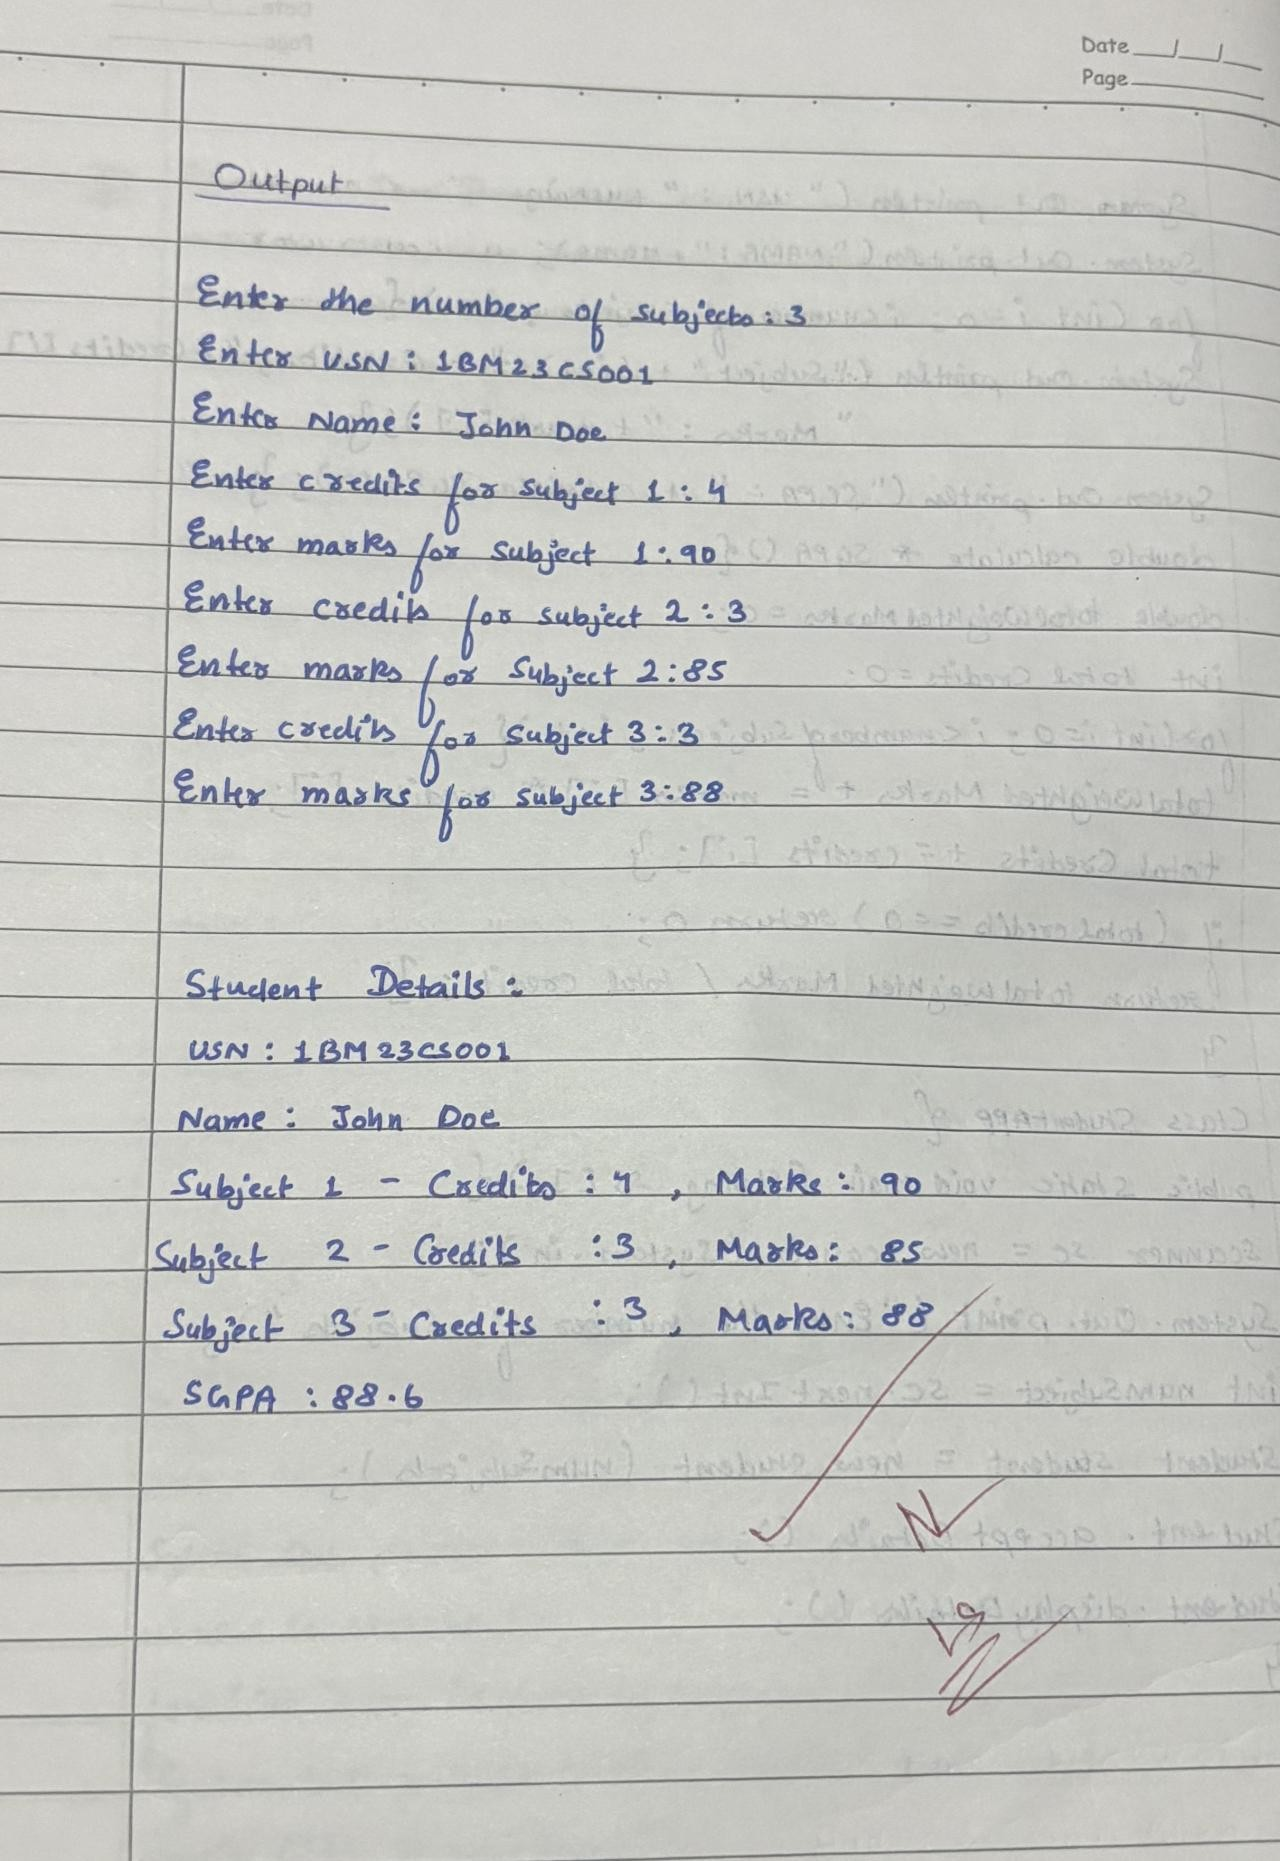 Date
Page
Output
Enter the number of subjects: 3
Enter USN: 1BM23CS001
Enter Name: John Doe
Enter credits for subject 1: 4
Enter marks for subject 1: 90
Enter credits for subject 2: 3
Enter marks for subject 2: 85
Enter credits for subject 3: 3
Enter marks for subject 3: 88
Student Details:
USN: 1BM23CS001
Name: John Doe
Subject 1 - Credits: 4, Marks: 90
Subject 2 - Credits: 3, Marks: 85
Subject 3 - Credits: 3, Marks: 88
SGPA: 88.6